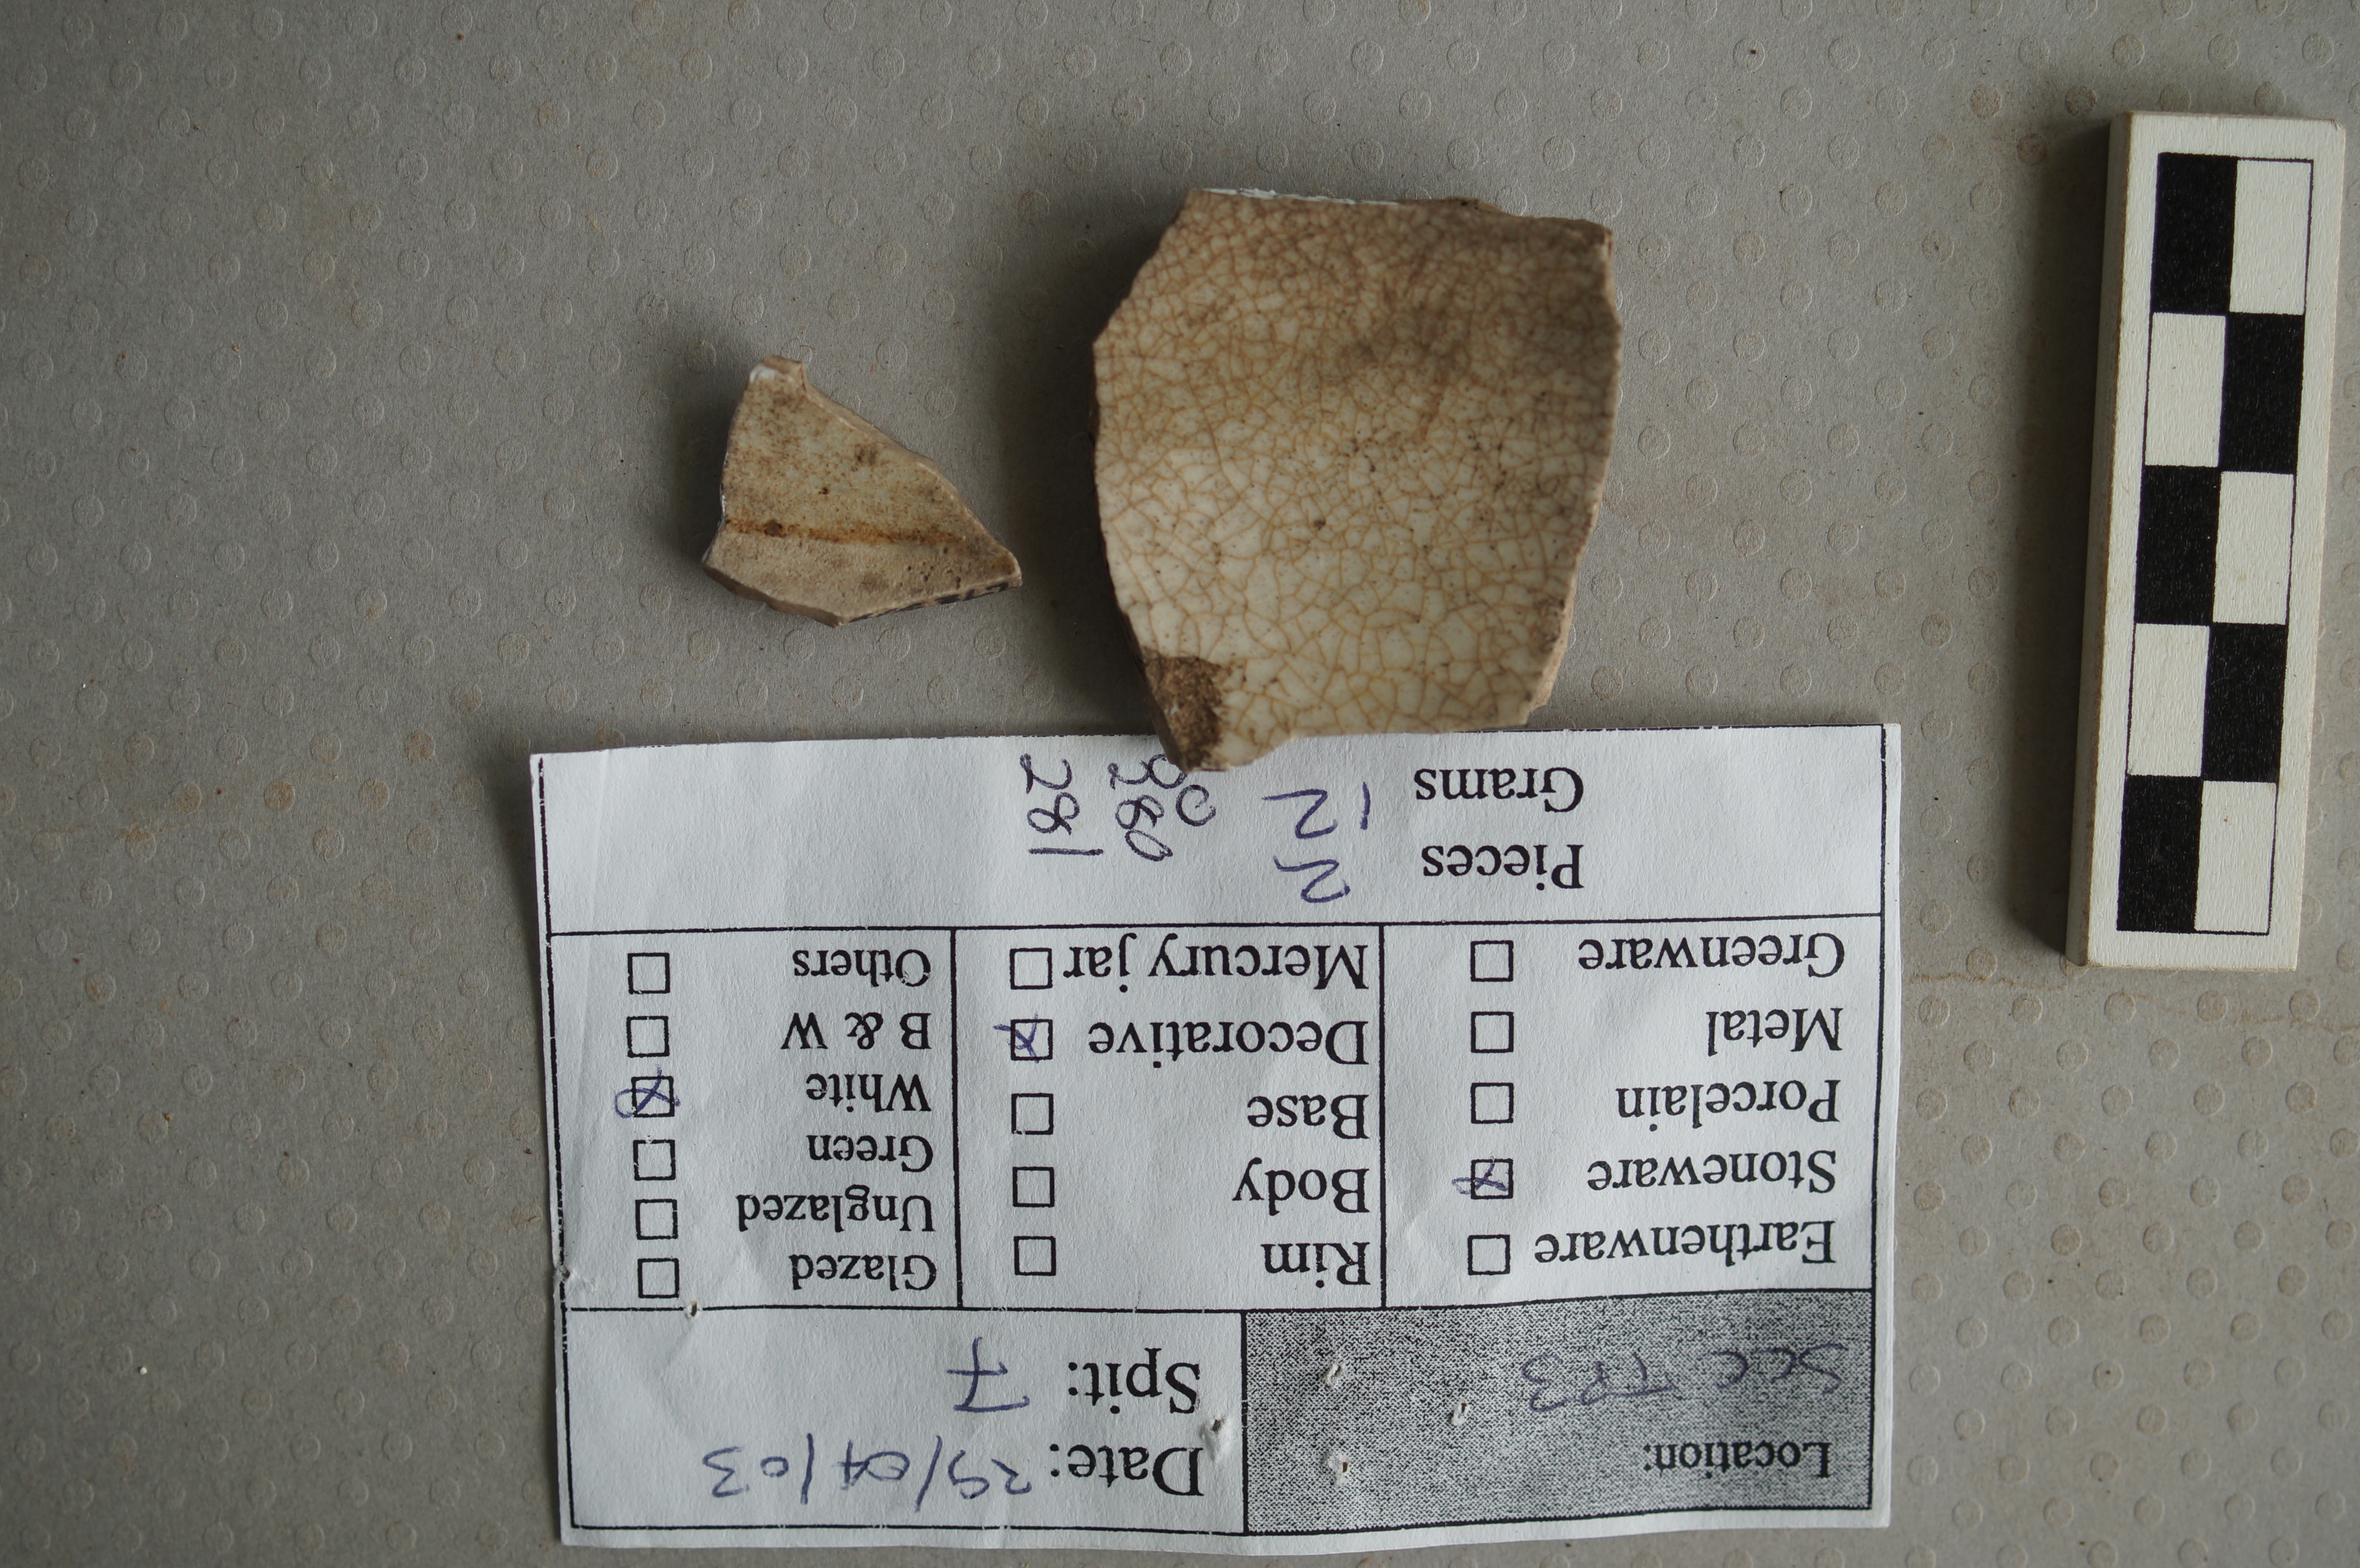 Location:
SCC TP3
Date: 29/04/03
Spit: 7
Earthenware
Stoneware
Porcelain
Metal
Greenware
Rim
Body
Base
Decorative
Mercury jar
Glazed
Unglazed
Green
White
B & W
Others
Pieces 2
Grams 12
280
281